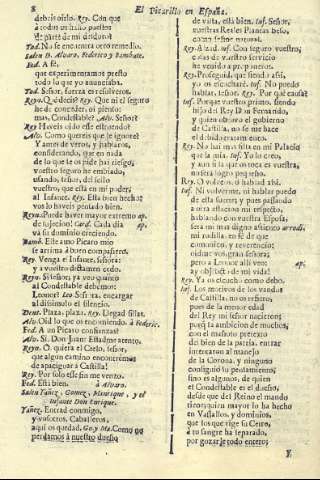 8 El Picarillo en España.
debaxo dello. Rey. Con què
à todos
de parte de mi
Fed. No se encuentra otro remedio.
Salen D. Alvaro, Federico y Bambale.
Fed. A fe,
que experimentamos presto
todo lo que yo anunciaba.
Fed. Señor, fuerza es resolveros.
Reyn. Què decís? Rey. Que ni el seguro
he de conceder, ni pienso
mas, Condestable? Alv. Señor?
Rey. Haveis oido este estruendo?
Alv. Como quereis que le ignore?
Y antes de veros, y hablaros,
considerando, que en nada
de lo que le os pide hai riesgo,
vuestro seguro he embiado,
usando, señor, del sello
vuestro, que està en mi poder,
al Infante. Rey. Està bien hecho;
vos lo haveis pensado bien.
Reyn. Puede haver mayor extremo ap.
de sujecion! Card. Cada dia
và su dominio creciendo.
Bamb. Este amo Picaro mio
se arrima à buen compañero.
Rey. Venga el Infante, señora;
y a vuestro dictamen cedo.
Reyn. Si señor, ya voi quinto
al Condestable debemos:
Leonor? Leo. Señora. encargar
al disimulo el silencio.
Dent. Plaza, plaza. Rey. Llegad sillas.
Alv. Oid lo que os recomiendo. à Federic.
Fed. A un Picaro confianzas?
Alv. Si, Don Juan: Estadme atento.
Reyn. O, quiera el Cielo, señor,
que algun camino encontremos
de apaciguar à Castilla!
Rey. Por solo esse fin me venzo.
Fed. Està bien. à Alvaro.
Salen Yañez, Gomez, Manrique, y el
Infante Don Enrique.
Yañez. Entrad conmigo,
y vosotros, Caballeros,
aqui os quedad. Go. y Ma. Como no
perdamos à nuestro dueño
de vista, està bien. Inf. Señor,
vuestras Reales Plantas beso,
como señor natural.
Rey. Alzad. Inf. Con seguro vuestro,
cosas de vuestro servicio
he venido a proponeros.
Rey. Proseguid, que siendo assi,
yo os escucharè. Inf. No puedo
hablar, señor. Rey. Por què causa?
Inf. Porque vuestro primo, siendo
hijo del Rey Don Fernando,
y quien obtuvo el gobierno
de Castilla, no se me hace
el debido tratamiento.
Rey. No hai mas silla en mi Palacio
que la mia. Inf. Yo lo creo,
y aun si la que os toca es vuestra,
no serà logro pequeño.
Rey. O volveos, ò hablad ahi.
Inf. Ni volverme, ni hablar puedo
de essa suerte; y pues passando
à otra atencion mi respecto,
hablando con vuestra Esposa,
serà mi mas digno assiento arrodi.
mi rodilla, en fe de que
comunico, y reverencio;
oidme vos, gran señora;
pero à Leonor alli veo: ap.
ay objecto de mi vida!
Rey. Ya os escucho como debo.
Inf. Los motivos de los vandos
de Castilla, no os refiero,
pues de la menor edad
del Rey mi señor nacieron;
pues la ambicion de muchos,
con el mañoso pretexto
del bien de la patria, entrar
intentaron al manejo
de la Corona, y ninguno
consiguiò su pensamiento;
sino es algunos, de quien
el Condestable es el dueño,
desde que del Reino el mando
tiene; quien mayor lo ha hecho
en Vassallos, y dominios,
que los que rige su Cetro,
à su sangre ha separado,
por gozarle todo entero;